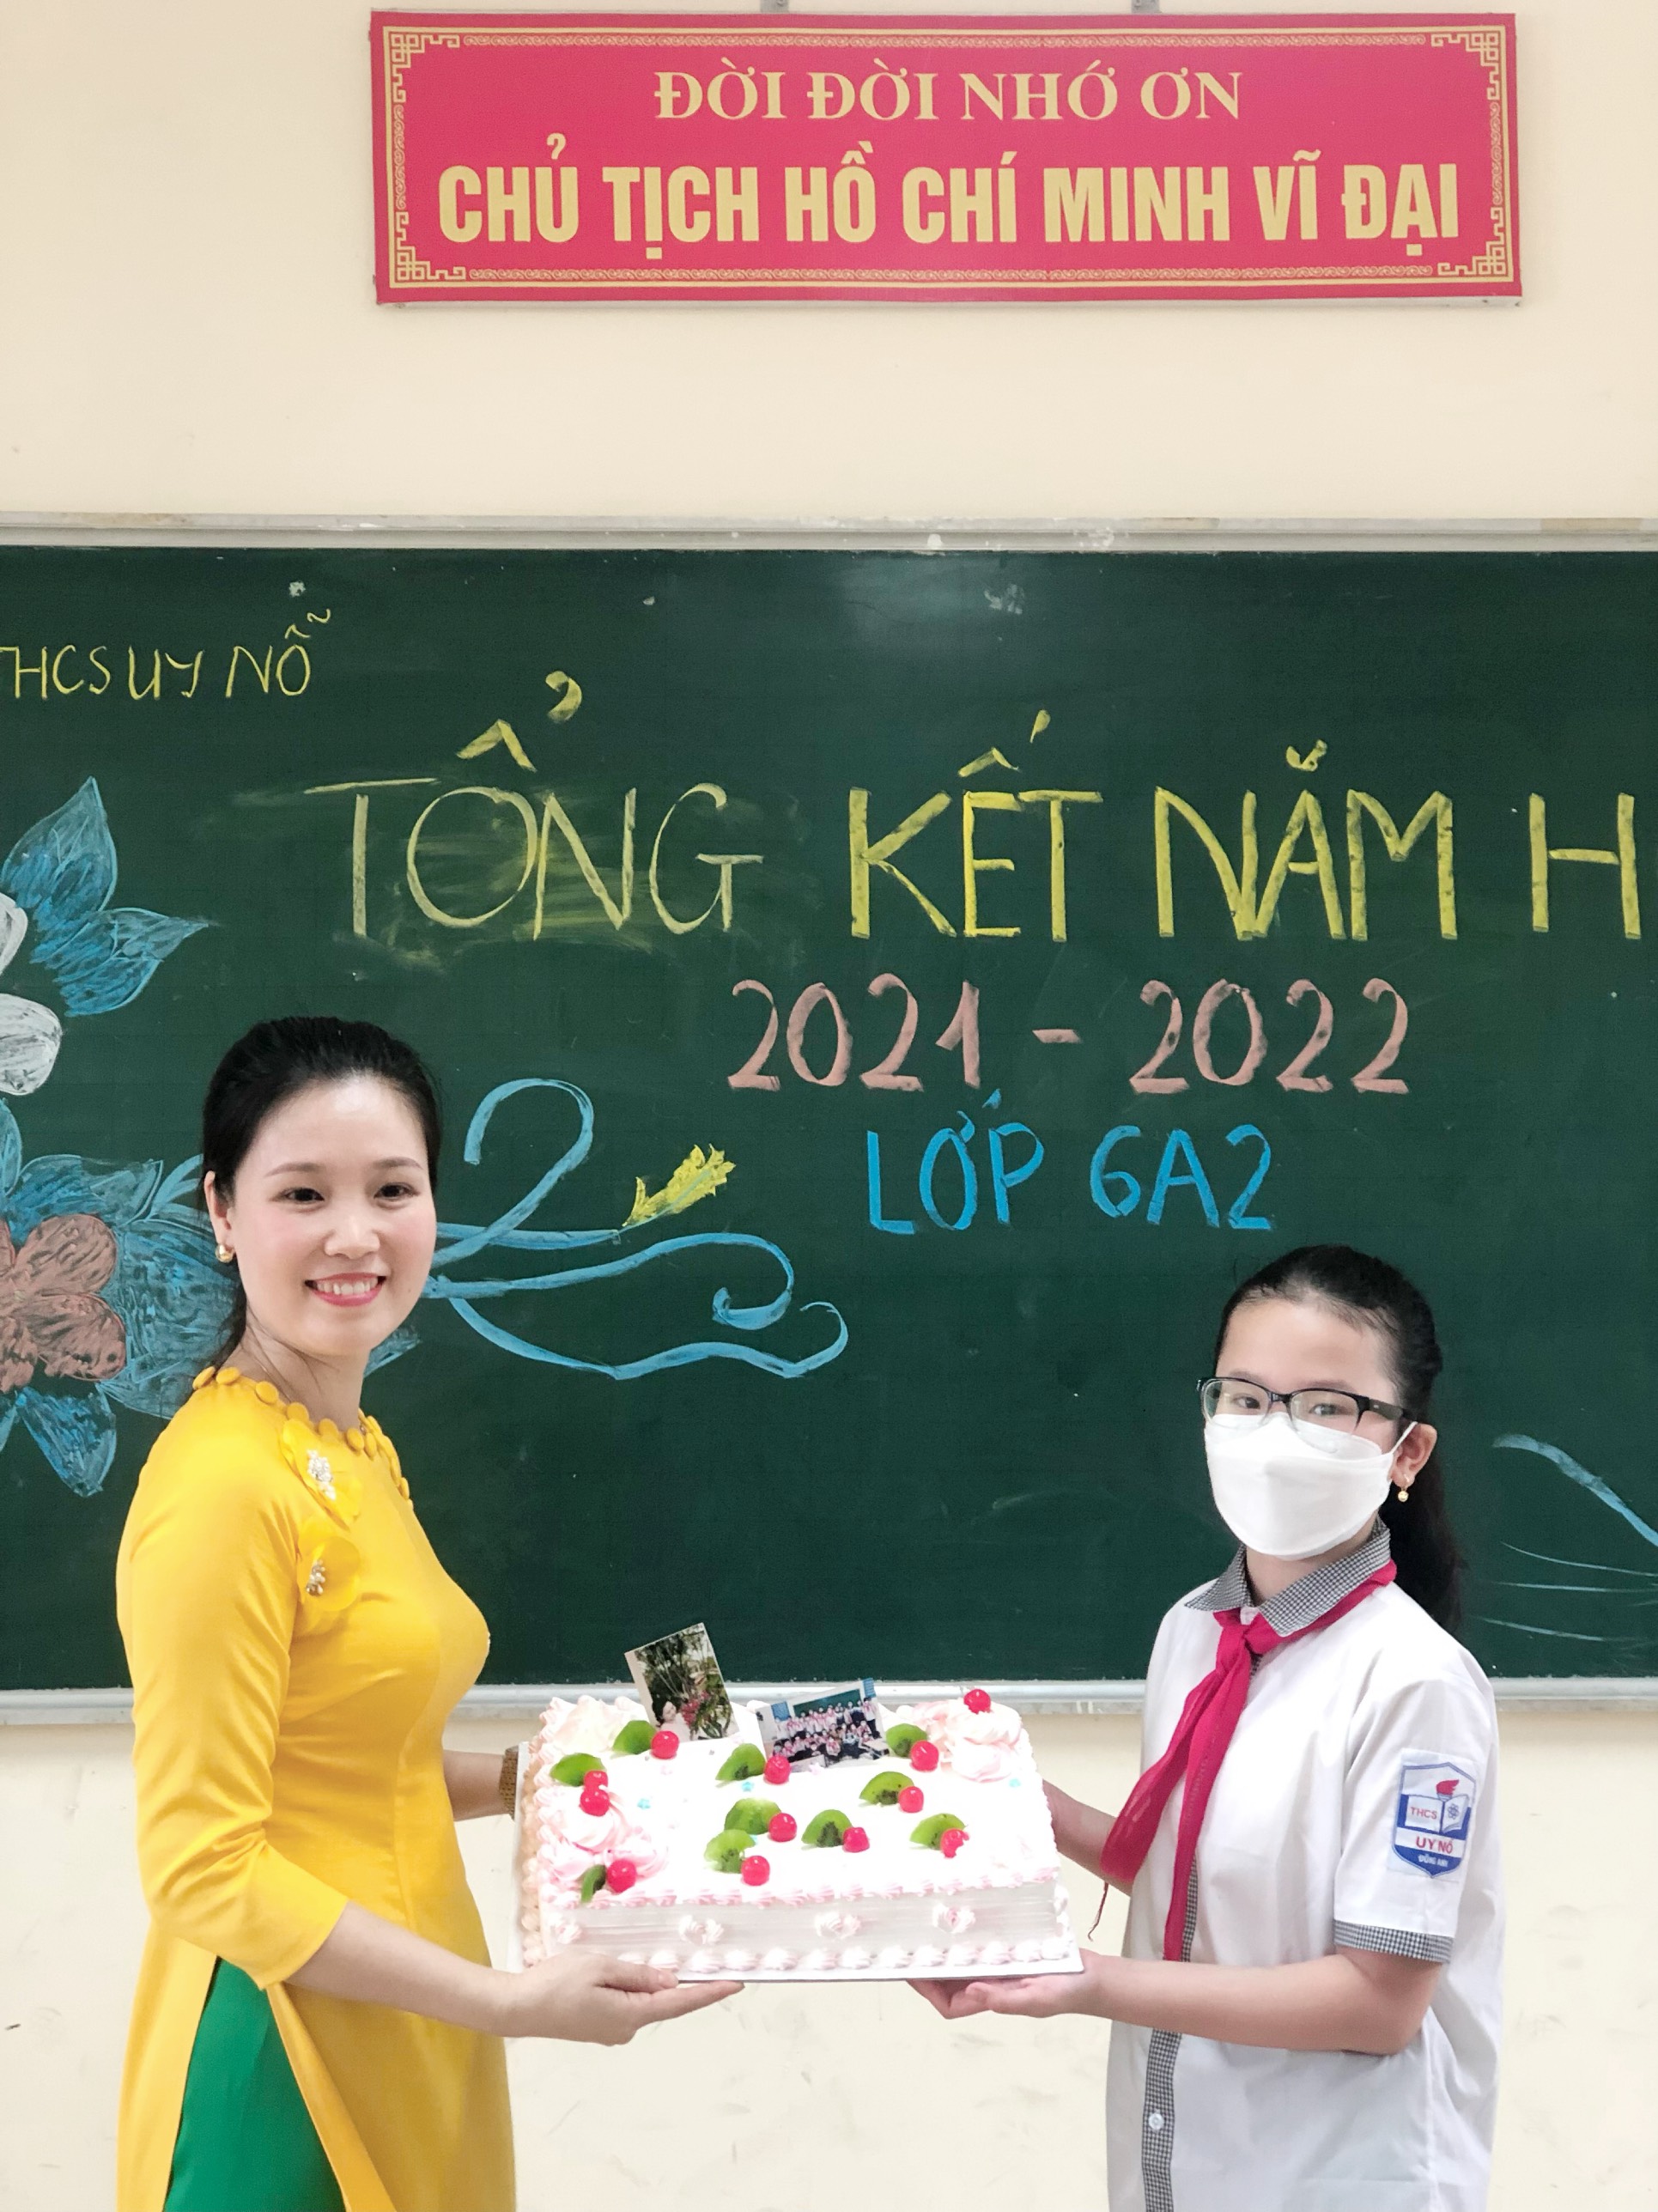 ĐỜI ĐỜI NHỚ ƠN
CHỦ TỊCH HỒ CHÍ MINH VĨ ĐẠI
THCS UY NỖ
TỔNG KẾT NĂM H
2021 - 2022
LỚP 6A2
THCS
UY NỖ
ĐÔNG ANH